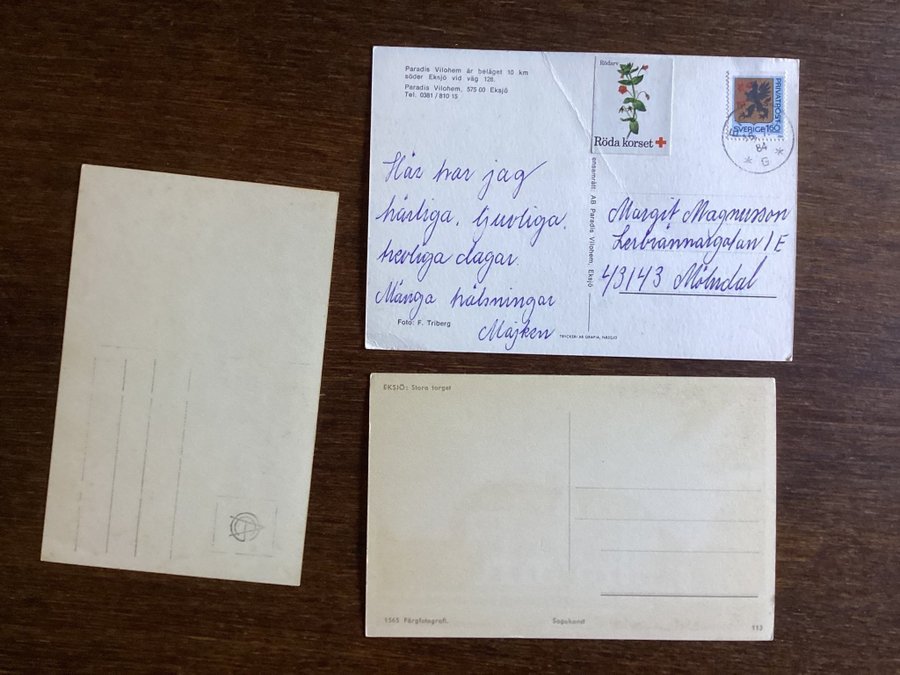 Paradis Vilohem är beläget 10 km
söder Eksjö vid väg 128.
Paradis Vilohem, 575 00 Eksjö
Tel. 0381/810 15
Rödarv
Röda korset
PRIVATPOST
SVERIGE 160
84
* G *
Här har jag
härliga, ljuvliga,
trevliga dagar.
Många hälsningar
Majken
Foto: F. Triberg
ensamrätt: AB Paradis Vilohem, Eksjö
TRYCKERI AB GRAFIA, NÄSSJÖ
Margit Magnusson
Lerbrännargatan 1 E
43143 Mölndal
EKSJÖ: Stora torget
1565 Färgfotografi.
Sagokonst
113